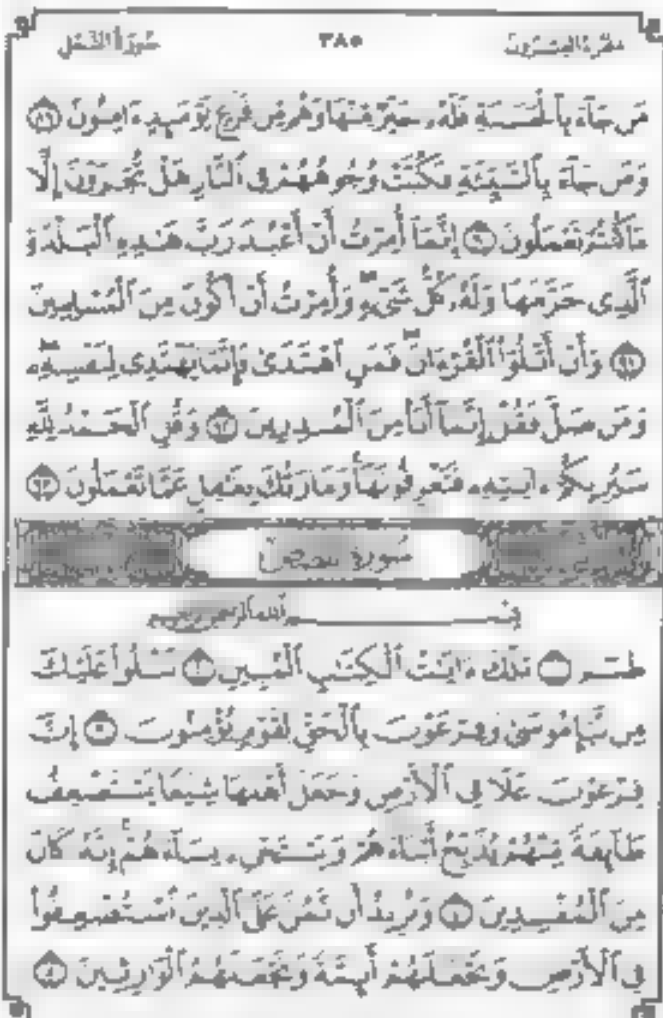 سورة النمل ٣٨٥ الجزء العشرون
مَن جَآءَ بِٱلْحَسَنَةِ فَلَهُۥ خَيْرٌ مِّنْهَا وَهُم مِّن فَزَعٍ يَوْمَئِذٍ ءَامِنُونَ ٨٩
وَمَن جَآءَ بِٱلسَّيِّئَةِ فَكُبَّتْ وُجُوهُهُمْ فِى ٱلنَّارِ هَلْ تُجْزَوْنَ إِلَّا
مَا كُنتُمْ تَعْمَلُونَ ٩٠ إِنَّمَآ أُمِرْتُ أَنْ أَعْبُدَ رَبَّ هَٰذِهِ ٱلْبَلْدَةِ
ٱلَّذِى حَرَّمَهَا وَلَهُۥ كُلُّ شَىْءٍ وَأُمِرْتُ أَنْ أَكُونَ مِنَ ٱلْمُسْلِمِينَ
٩١ وَأَنْ أَتْلُوَا۟ ٱلْقُرْءَانَ فَمَنِ ٱهْتَدَىٰ فَإِنَّمَا يَهْتَدِى لِنَفْسِهِۦ
وَمَن ضَلَّ فَقُلْ إِنَّمَآ أَنَا۠ مِنَ ٱلْمُنذِرِينَ ٩٢ وَقُلِ ٱلْحَمْدُ لِلَّهِ
سَيُرِيكُمْ ءَايَٰتِهِۦ فَتَعْرِفُونَهَا وَمَا رَبُّكَ بِغَٰفِلٍ عَمَّا تَعْمَلُونَ ٩٣
سورة القصص
بِسْمِ ٱللَّهِ ٱلرَّحْمَٰنِ ٱلرَّحِيمِ
طسٓمٓ ١ تِلْكَ ءَايَٰتُ ٱلْكِتَٰبِ ٱلْمُبِينِ ٢ نَتْلُوا۟ عَلَيْكَ
مِن نَّبَإِ مُوسَىٰ وَفِرْعَوْنَ بِٱلْحَقِّ لِقَوْمٍ يُؤْمِنُونَ ٣ إِنَّ
فِرْعَوْنَ عَلَا فِى ٱلْأَرْضِ وَجَعَلَ أَهْلَهَا شِيَعًا يَسْتَضْعِفُ
طَآئِفَةً مِّنْهُمْ يُذَبِّحُ أَبْنَآءَهُمْ وَيَسْتَحْىِۦ نِسَآءَهُمْ إِنَّهُۥ كَانَ
مِنَ ٱلْمُفْسِدِينَ ٤ وَنُرِيدُ أَن نَّمُنَّ عَلَى ٱلَّذِينَ ٱسْتُضْعِفُوا۟
فِى ٱلْأَرْضِ وَنَجْعَلَهُمْ أَئِمَّةً وَنَجْعَلَهُمُ ٱلْوَٰرِثِينَ ٥